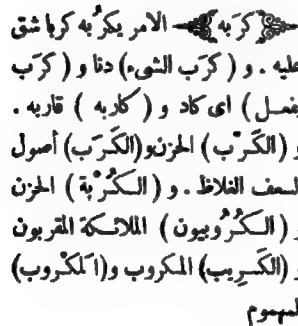 كرَبه الامر يكرُبه كربا شق
عليه . و ( كرَب الشيء) دنا و ( كرَب
يفعل ) اى كاد و ( كاربه ) قاربه .
و (الكَرْب) الحزن و(الكَرَب) أصول
السعف الغلاظ . و ( الكُرْبة ) الحزن
و ( الكَرُوبيون ) الملائكة المقربون
و (الكَرِيب) المكروب و(المكْروب)
المهموم